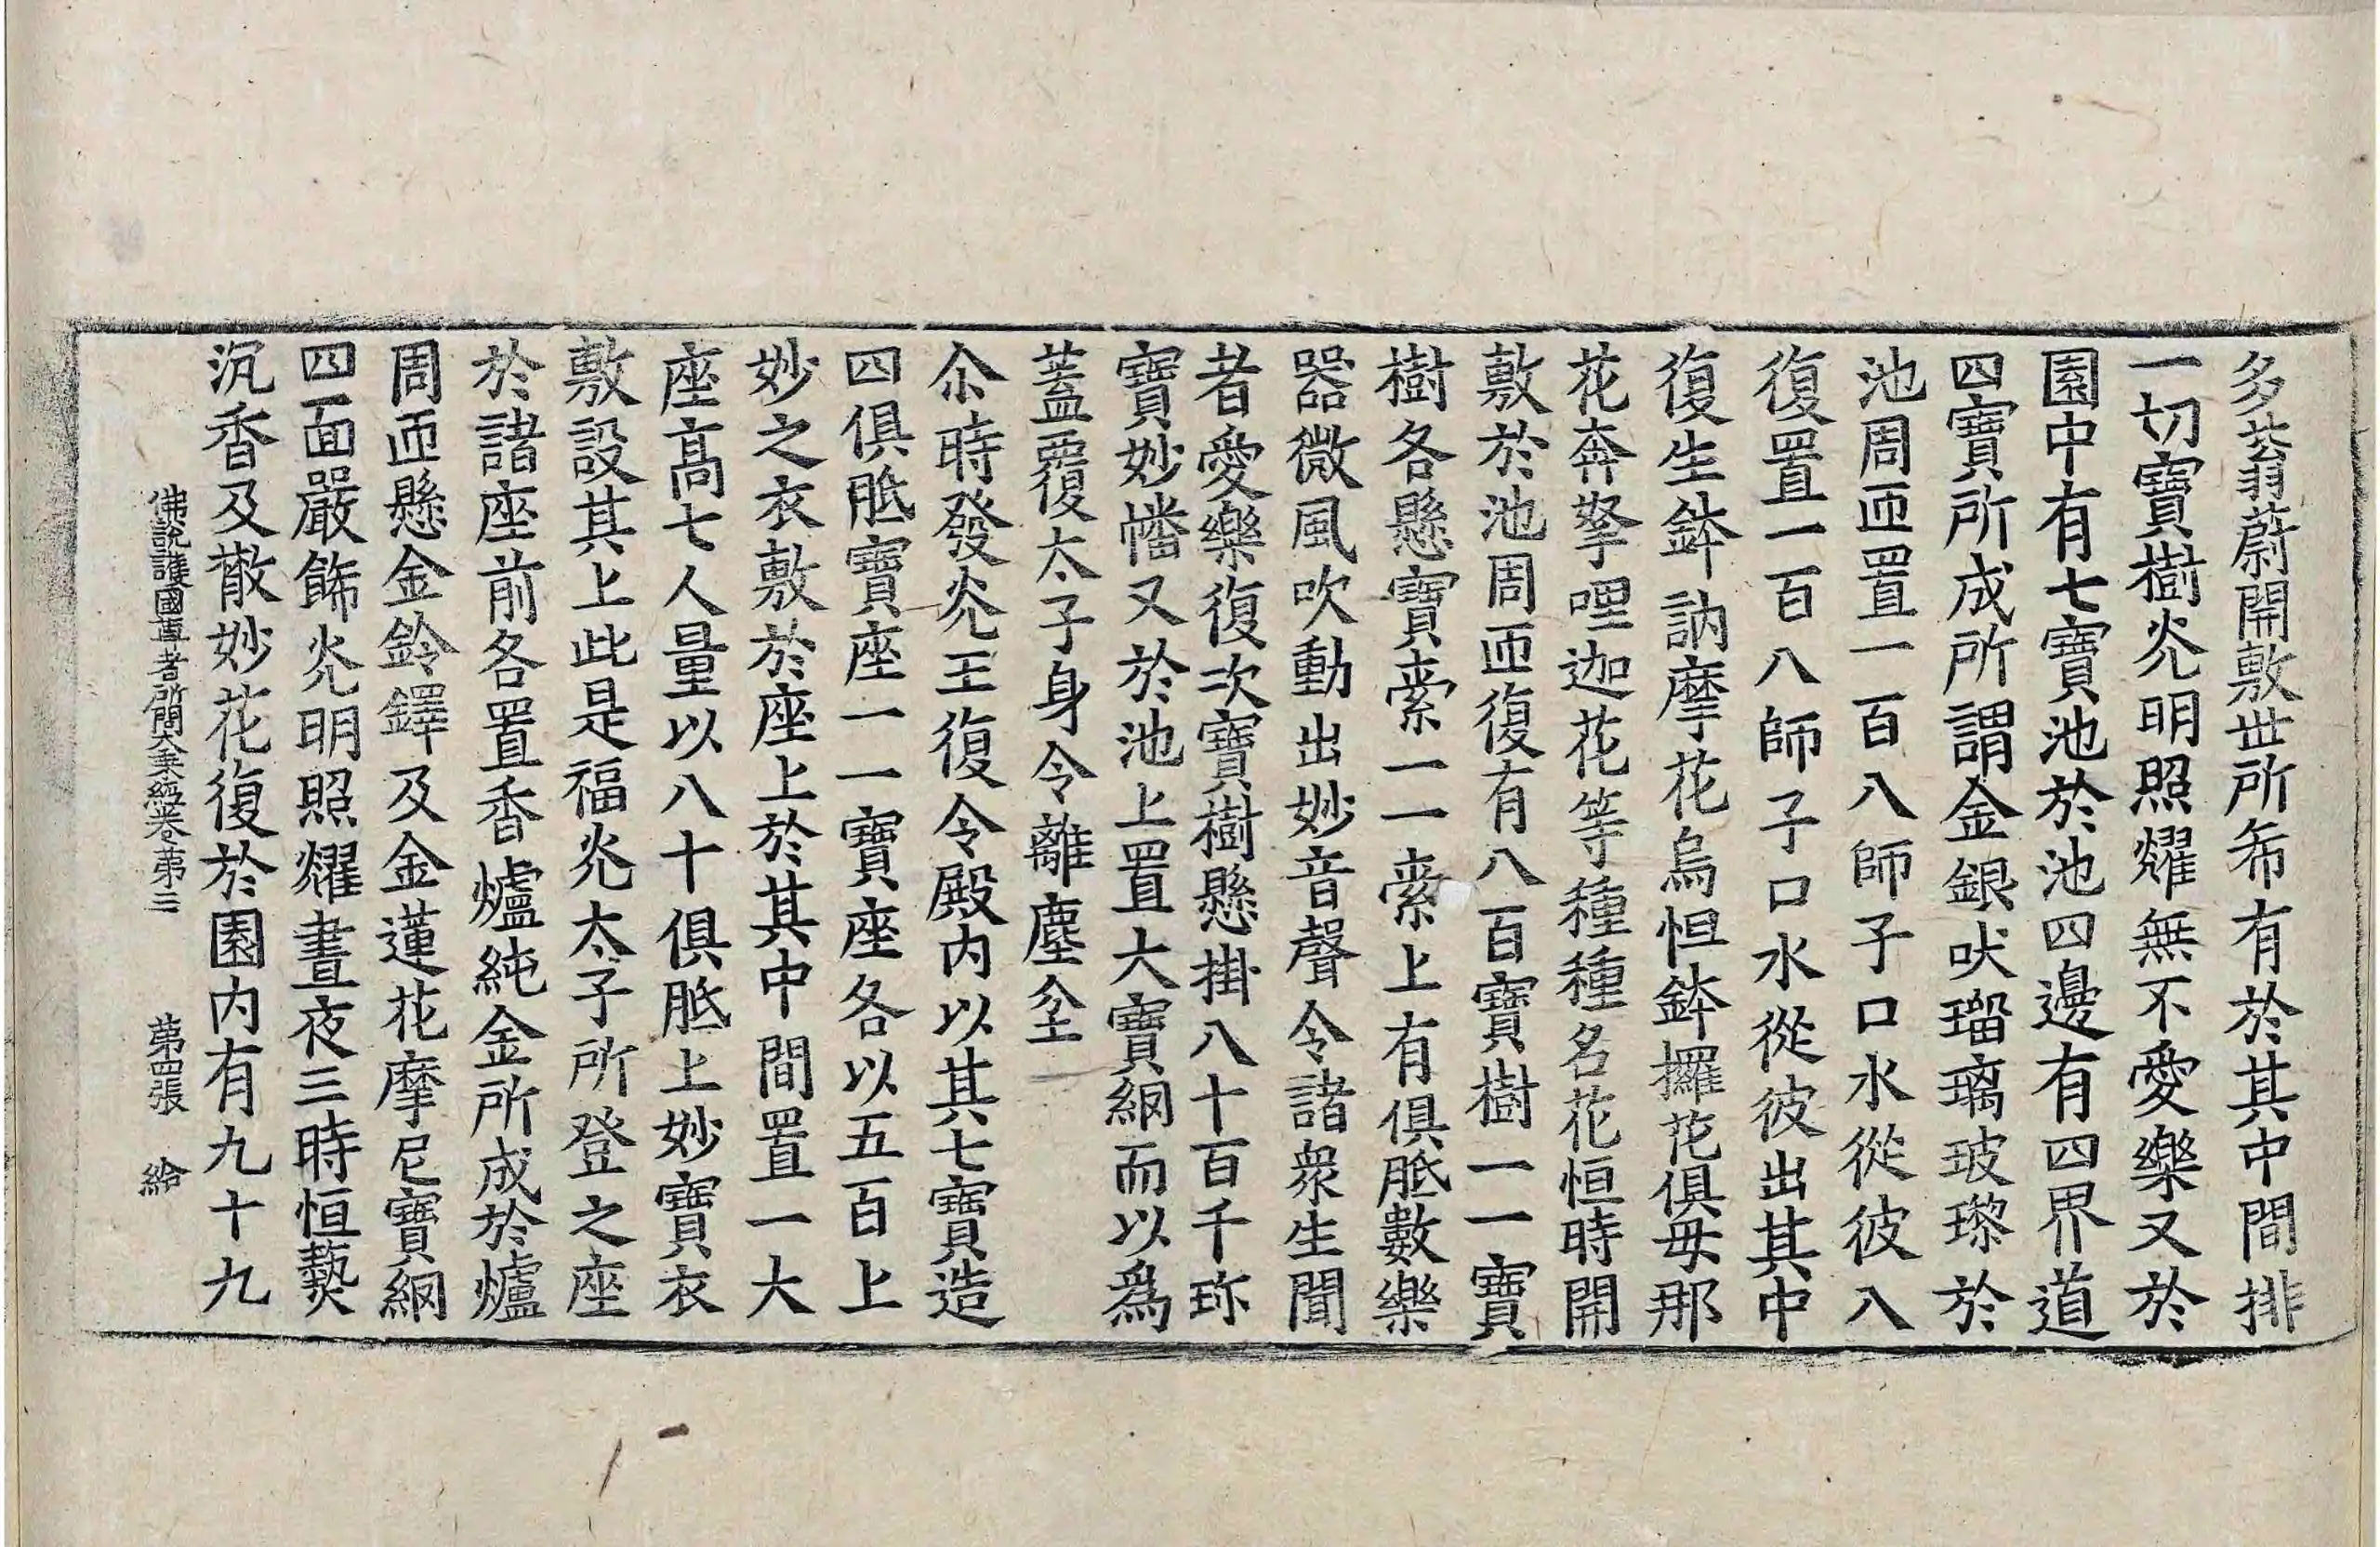 多蓊蔚開敷世所希有於其中間排
一切寶樹光明照耀無不愛樂又於
園中有七寶池於池四邊有四界道
四寶所成所謂金銀吠瑠璃玻瓈於
池周帀置一百八師子口水從彼八
復置一百八師子口水從彼出其中
復生鉢訥摩花烏怛鉢攞花俱毋那
花奔拏哩迦花等種種名花恒時開
敷於池周帀復有八百寶樹一一寶
樹各懸寶索一一索上有俱胝數樂
器微風吹動出妙音聲令諸衆生聞
者愛樂復次寶樹懸掛八十百千珎
寶妙幡又於池上置大寶網而以爲
蓋覆太子身令離塵坌
尒時發光王復令殿内以其七寶造
四俱胝寶座一一寶座各以五百上
妙之衣敷於座上於其中間置一大
座高七人量以八十俱胝上妙寶衣
敷設其上此是福光太子所登之座
於諸座前各置香爐純金所成於爐
周帀懸金鈴鐸及金蓮花摩尼寶網
四面嚴飾光明照耀晝夜三時恒爇
沉香及散妙花復於園内有九十九
佛說護國尊者所問大乗經卷第三 第四張 給